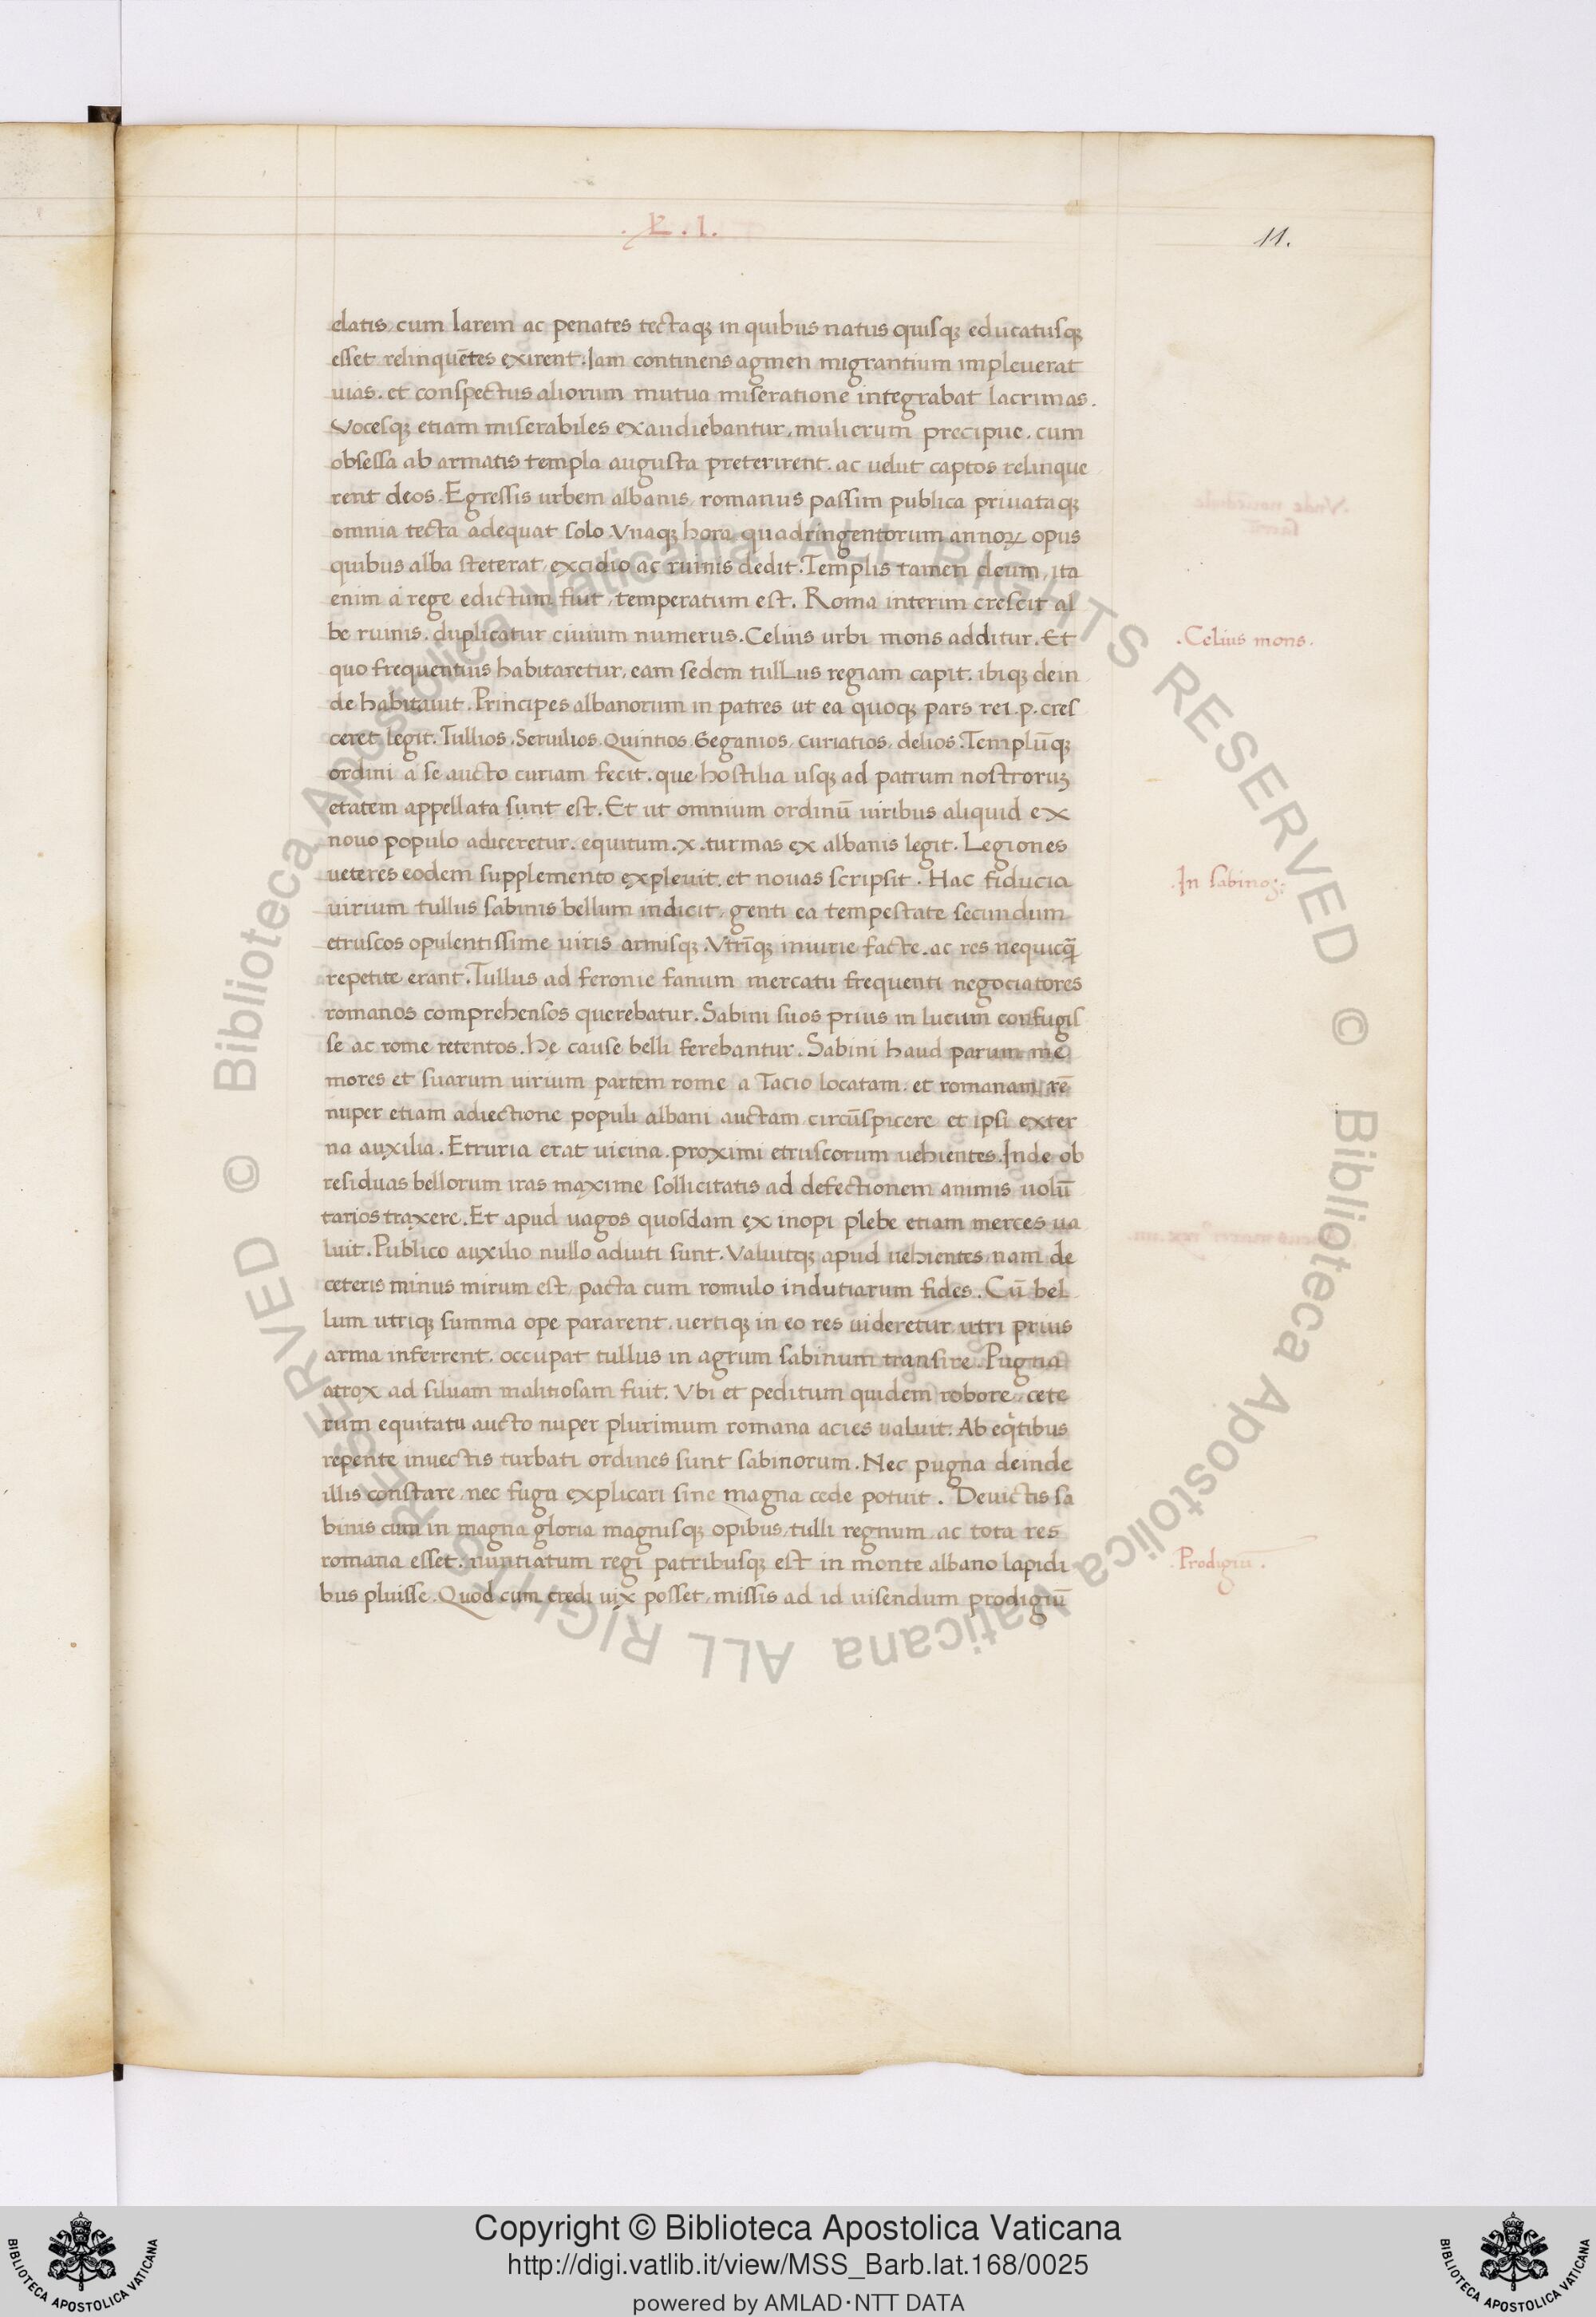 .L.I.
11.
elatis, cum larem ac penates tectaqꝫ in quibus natus quisqꝫ educatusqꝫ
esset relinquētes exirent. Iam continens agmen migrantium impleuerat
uias. et conspectus aliorum mutua miseratione integrabat lacrimas.
Vocesqꝫ etiam miserabiles exaudiebantur, mulierum precipue. cum
obsessa ab armatis templa augusta preterirent. ac uelut captos relinque
rent deos. Egressis urbem albanis, romanus passim publica priuataqꝫ
omnia tecta adequat solo. Vnaqꝫ hora quadringentorum annoꝝ opus
quibus alba steterat, excidio ac ruinis dedit. Templis tamen deum, ita
enim a rege edictum fuit, temperatum est. Roma interim crescit al
be ruinis. duplicatur ciuium numerus. Celius urbi mons additur. Et
.Celius mons.
quo frequentius habitaretur, eam sedem tullus regiam capit. ibiqꝫ dein
de habitauit. Principes albanorum in patres ut ea quoqꝫ pars rei .p. cres
ceret legit. Tullios. Seruilios. Quintios. Geganios, curiatios, delios. Templūqꝫ
ordini a se aucto curiam fecit. que hostilia usqꝫ ad patrum nostroruꝫ
etatem appellata sunt est. Et ut omnium ordinū uiribus aliquid ex
nouo populo adiceretur. equitum .x. turmas ex albanis legit. Legiones
ueteres eodem supplemento expleuit. et nouas scripsit. Hac fiducia
.In sabinoꝝ.
uirium tullus sabinis bellum indicit, genti ea tempestate secundum
etruscos opulentissime uiris armisqꝫ. Vtrīqꝫ iniurie facte. ac res nequicq̄
repetite erant. Tullus ad feronie fanum mercatu frequenti negociatores
romanos comprehensos querebatur. Sabini suos prius in lucum confugis
se ac rome retentos. He cause belli ferebantur. Sabini haud parum me
mores et suarum uirium partem rome a Tacio locatam. et romanam rē
nuper etiam adiectione populi albani auctam circūspicere et ipsi exter
na auxilia. Etruria erat uicina. proximi etruscorum uehientes. Inde ob
residuas bellorum iras maxime sollicitatis ad defectionem animis uolū
tarios traxere. Et apud uagos quosdam ex inopi plebe etiam merces ua
luit. Publico auxilio nullo adiuti sunt. Valuitqꝫ apud uehientes, nam de
ceteris minus mirum est, pacta cum romulo indutiarum fides. Cū bel
lum utriqꝫ summa ope pararent, uertiqꝫ in eo res uideretur utri prius
arma inferrent. occupat tullus in agrum sabinum transire. Pugna
atrox ad siluam malitiosam fuit. Vbi et peditum quidem robore, cete
rum equitatu aucto nuper plurimum romana acies ualuit. Ab eq̇tibus
repente inuectis turbati ordines sunt sabinorum. Nec pugna deinde
illis constare, nec fuga explicari sine magna cede potuit. Deuictis sa
binis cum in magna gloria magnisqꝫ opibus, tulli regnum ac tota res
romana esset. nuntiatum regi patribusqꝫ est in monte albano lapidi
.Prodigiū.
bus pluisse. Quod cum credi uix posset, missis ad id uisendum prodigiū
© Biblioteca Apostolica Vaticana ALL RIGHTS RESERVED © Biblioteca Apostolica Vaticana ALL RIGHTS RESERVED
Copyright © Biblioteca Apostolica Vaticana
http://digi.vatlib.it/view/MSS_Barb.lat.168/0025
powered by AMLAD·NTT DATA
BIBLIOTECA APOSTOLICA VATICANA
BIBLIOTECA APOSTOLICA VATICANA